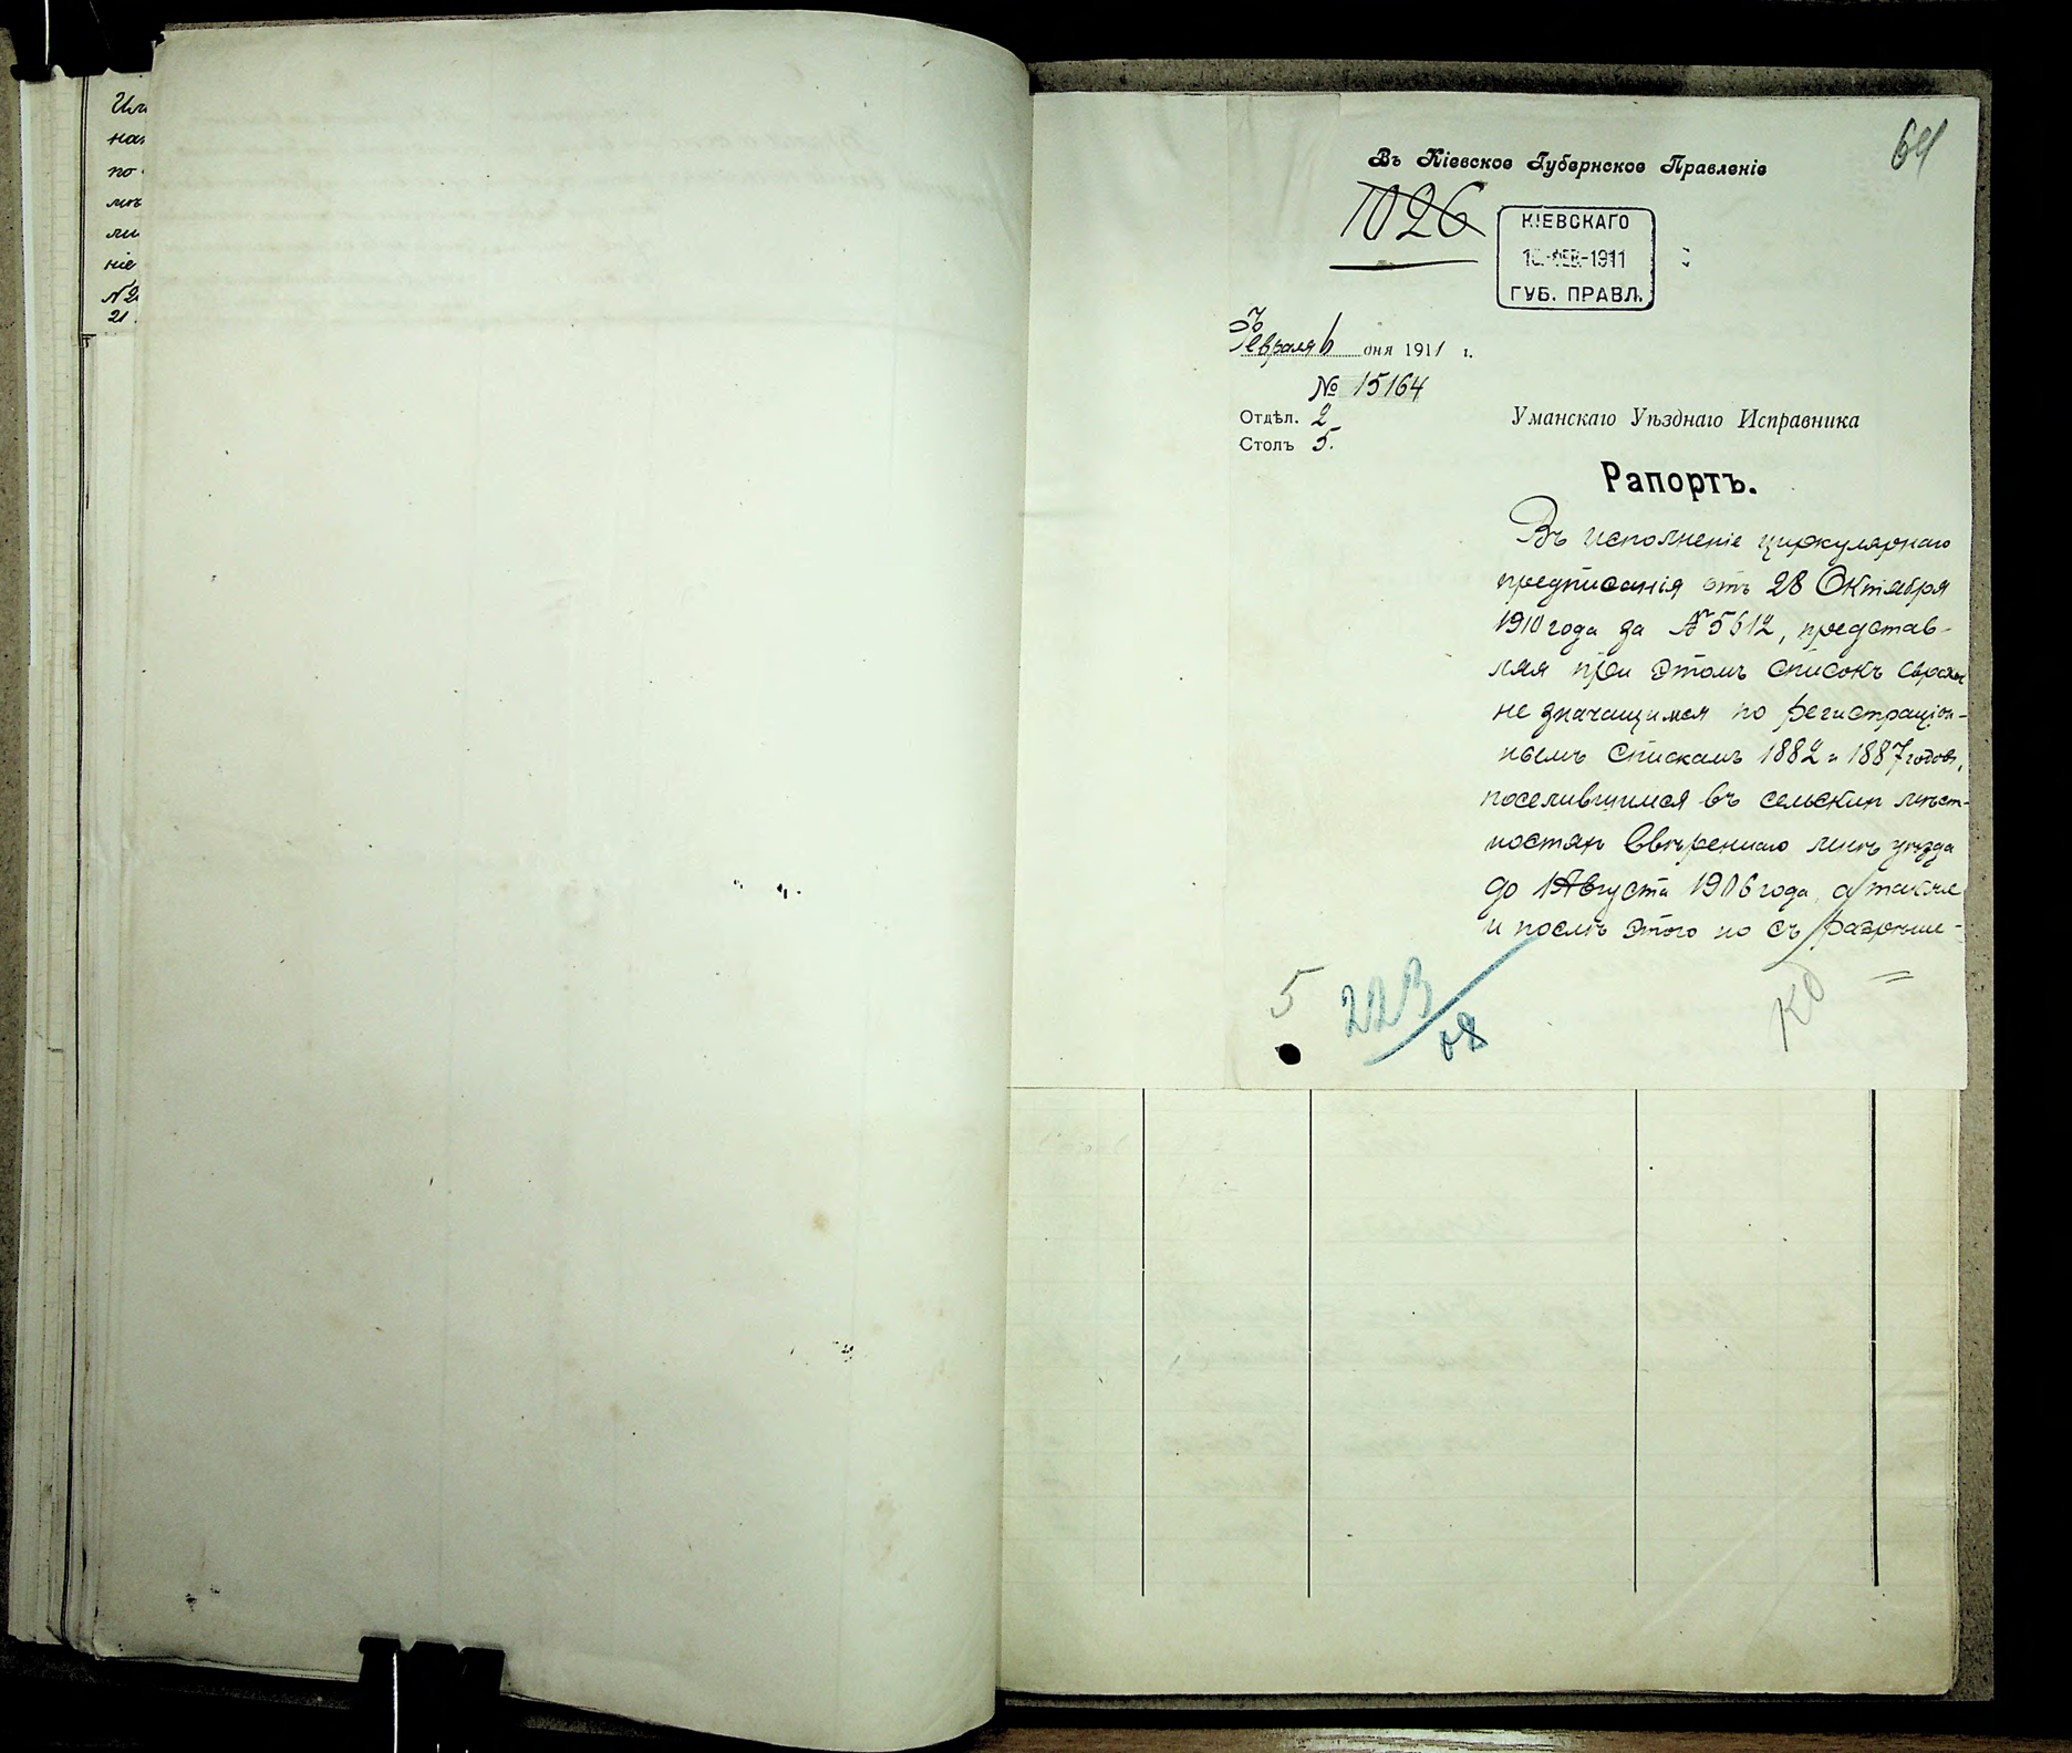 Или
нах
по
мѣ
ли
ніе
№2
21
64
Въ Кіевское Губернское Правленіе
1026
КІЕВСКАГО
ФЕВ-1911
ГУБ. ПРАВЛ.
Февраля 6 дня 1911 г.
№ 15164
Отдѣл. 2
Столъ 5.
Уманскаго Уѣзднаго Исправника
Рапортъ.
Въ исполненіе циркулярнаго
предписанія отъ 28 Октября
1910 года за № 5612, представ-
ляя при этомъ списокъ евреямъ
не значащимся по регистраціон-
нымъ спискамъ 1882 и 1887 годовъ,
поселившимся въ сельскихъ мѣст-
ностяхъ ввѣреннаго мнѣ уѣзда
до 1 Августа 1906 года, а также
и послѣ этого но съ разрѣше-
5
223/08